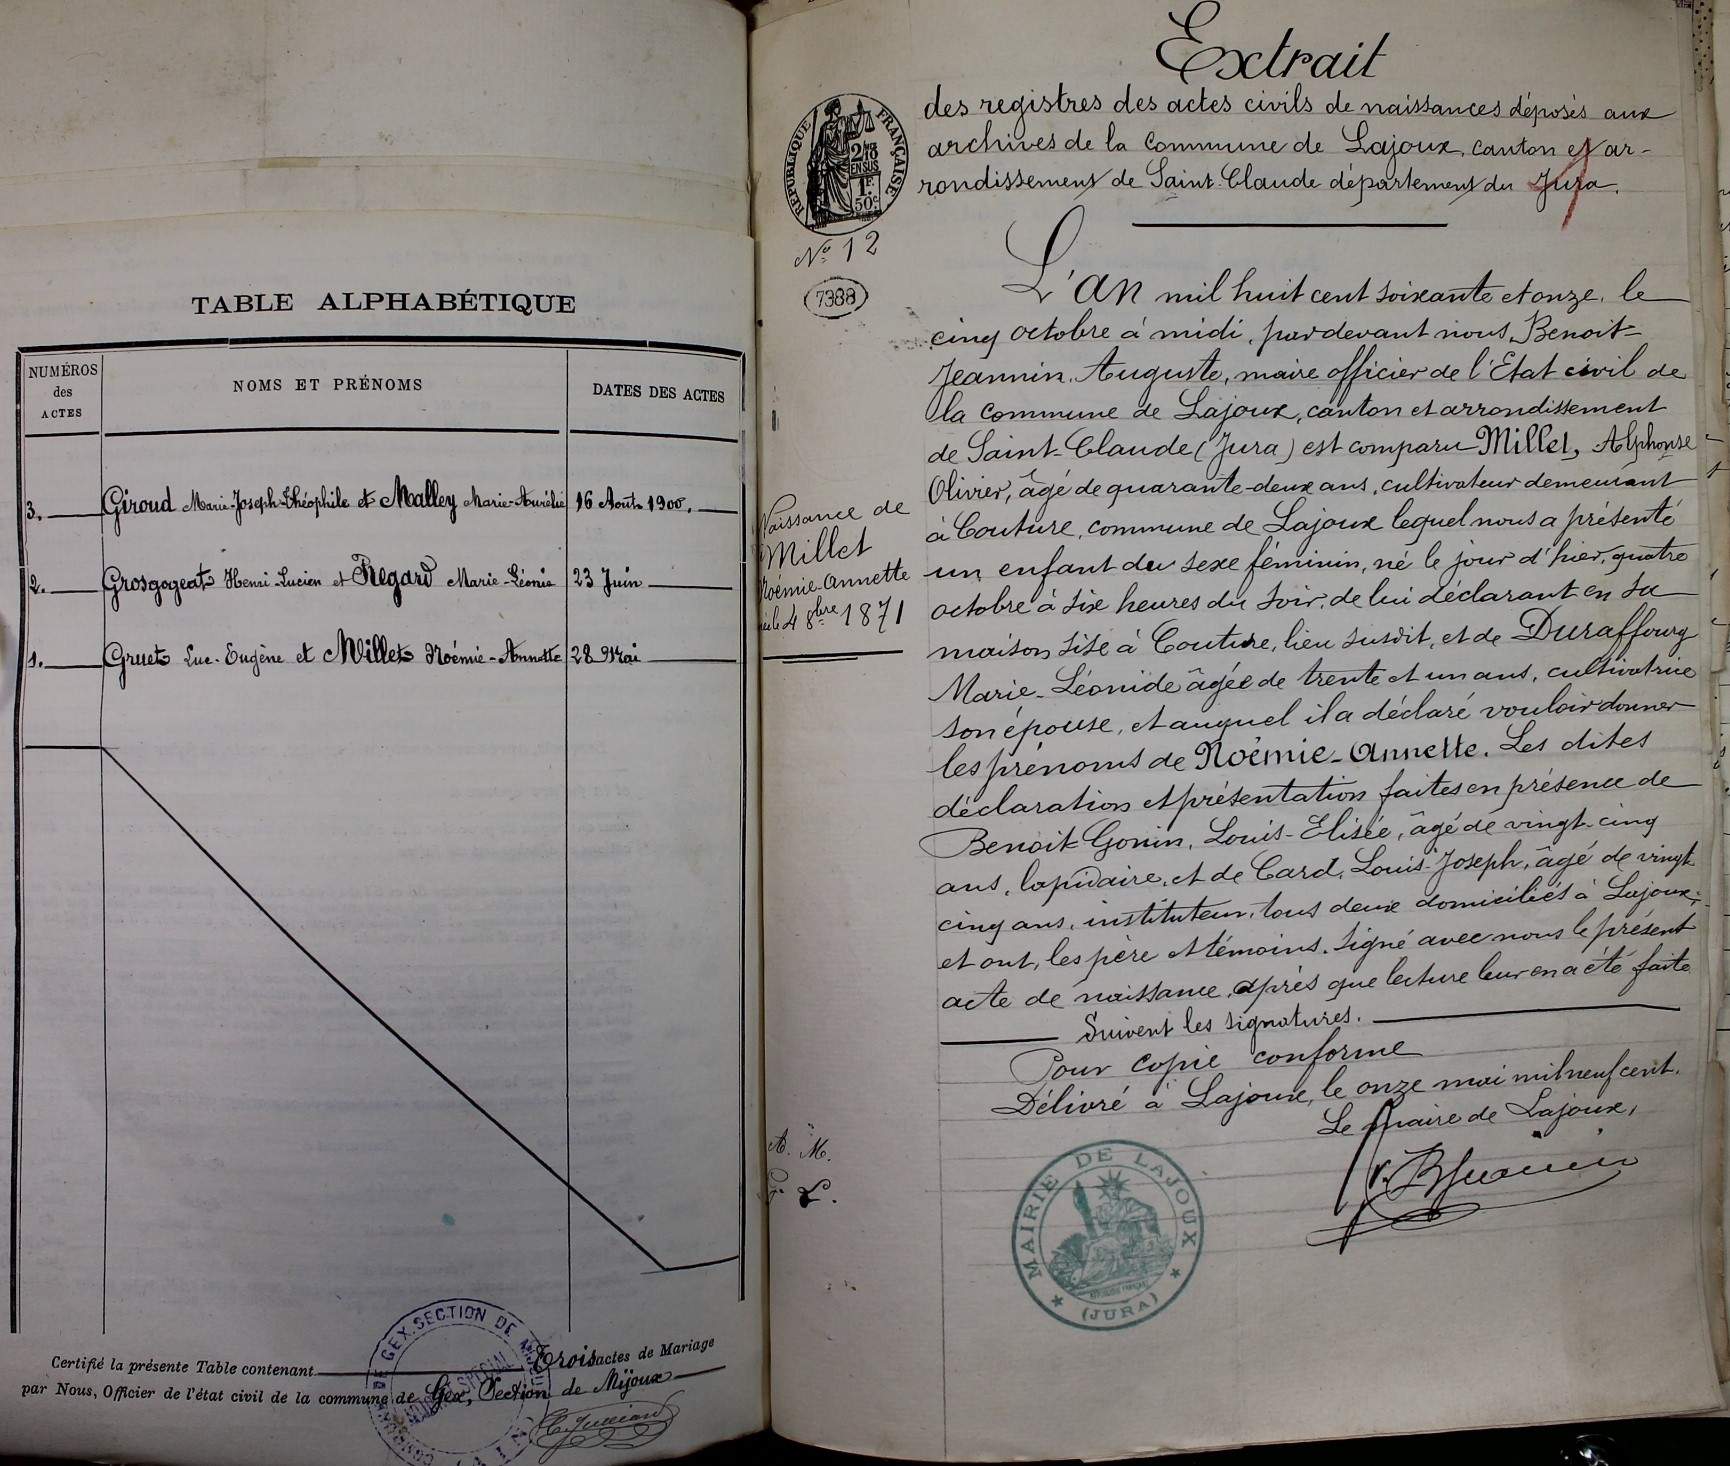 TABLE ALPHABÉTIQUE
NUMÉROS
des
ACTES
NOMS ET PRÉNOMS
DATES DES ACTES
3. Giroud Marie-Joseph-Théophile et Malley Marie-Aurélie 16 Août 1900.
2. Grosgogeat Henri-Lucien et Regard Marie-Léonie 23 Juin
1. Gruet Luc-Eugène et Millet Noémie-Annette 28 Mai
Certifié la présente Table contenant Trois actes de Mariage
par Nous, Officier de l'état civil de la commune de Gex, Section de Mijoux
DE GEX. SECTION DE
Extrait
des registres des actes civils de naissances déposés aux
archives de la commune de Lajoux, canton et ar-
rondissement de Saint-Claude département du Jura.
RÉPUBLIQUE FRANÇAISE
2/10
EN SUS
1F.
50c
No 12
7388
L'an mil huit cent soixante et onze, le
cinq octobre à midi, par devant nous, Benoit-
Jeannin, Auguste, maire officier de l'Etat civil de
la commune de Lajoux, canton et arrondissement
de Saint-Claude (Jura) est comparu Millet, Alphonse
Olivier, âgé de quarante-deux ans, cultivateur demeurant
à Couture, commune de Lajoux lequel nous a présenté
un enfant du sexe féminin, né le jour d'hier, quatre
octobre à six heures du soir, de lui déclarant en sa
maison sise à Couture, lieu susdit, et de Duraffourg
Marie-Léonide âgée de trente et un ans, cultivatrice
son épouse, et auquel il a déclaré vouloir donner
les prénoms de Noémie-Annette. Les dites
déclaration et présentation faites en présence de
Benoit-Gonin, Louis-Elisée, âgé de vingt-cinq
ans, lapidaire, et de Card, Louis-Joseph, âgé de vingt
cinq ans, instituteur, tous deux domiciliés à Lajoux;
et ont, les père et témoins, signé avec nous le présent
acte de naissance, après que lecture leur en a été faite
Suivent les signatures.
Pour copie conforme
Délivré à Lajoux, le onze mai mil neuf cent.
Le maire de Lajoux,
Naissance de
Millet
Noémie-Annette
née le 4 8bre 1871
A. M.
L.
MAIRIE DE LAJOUX
(JURA)